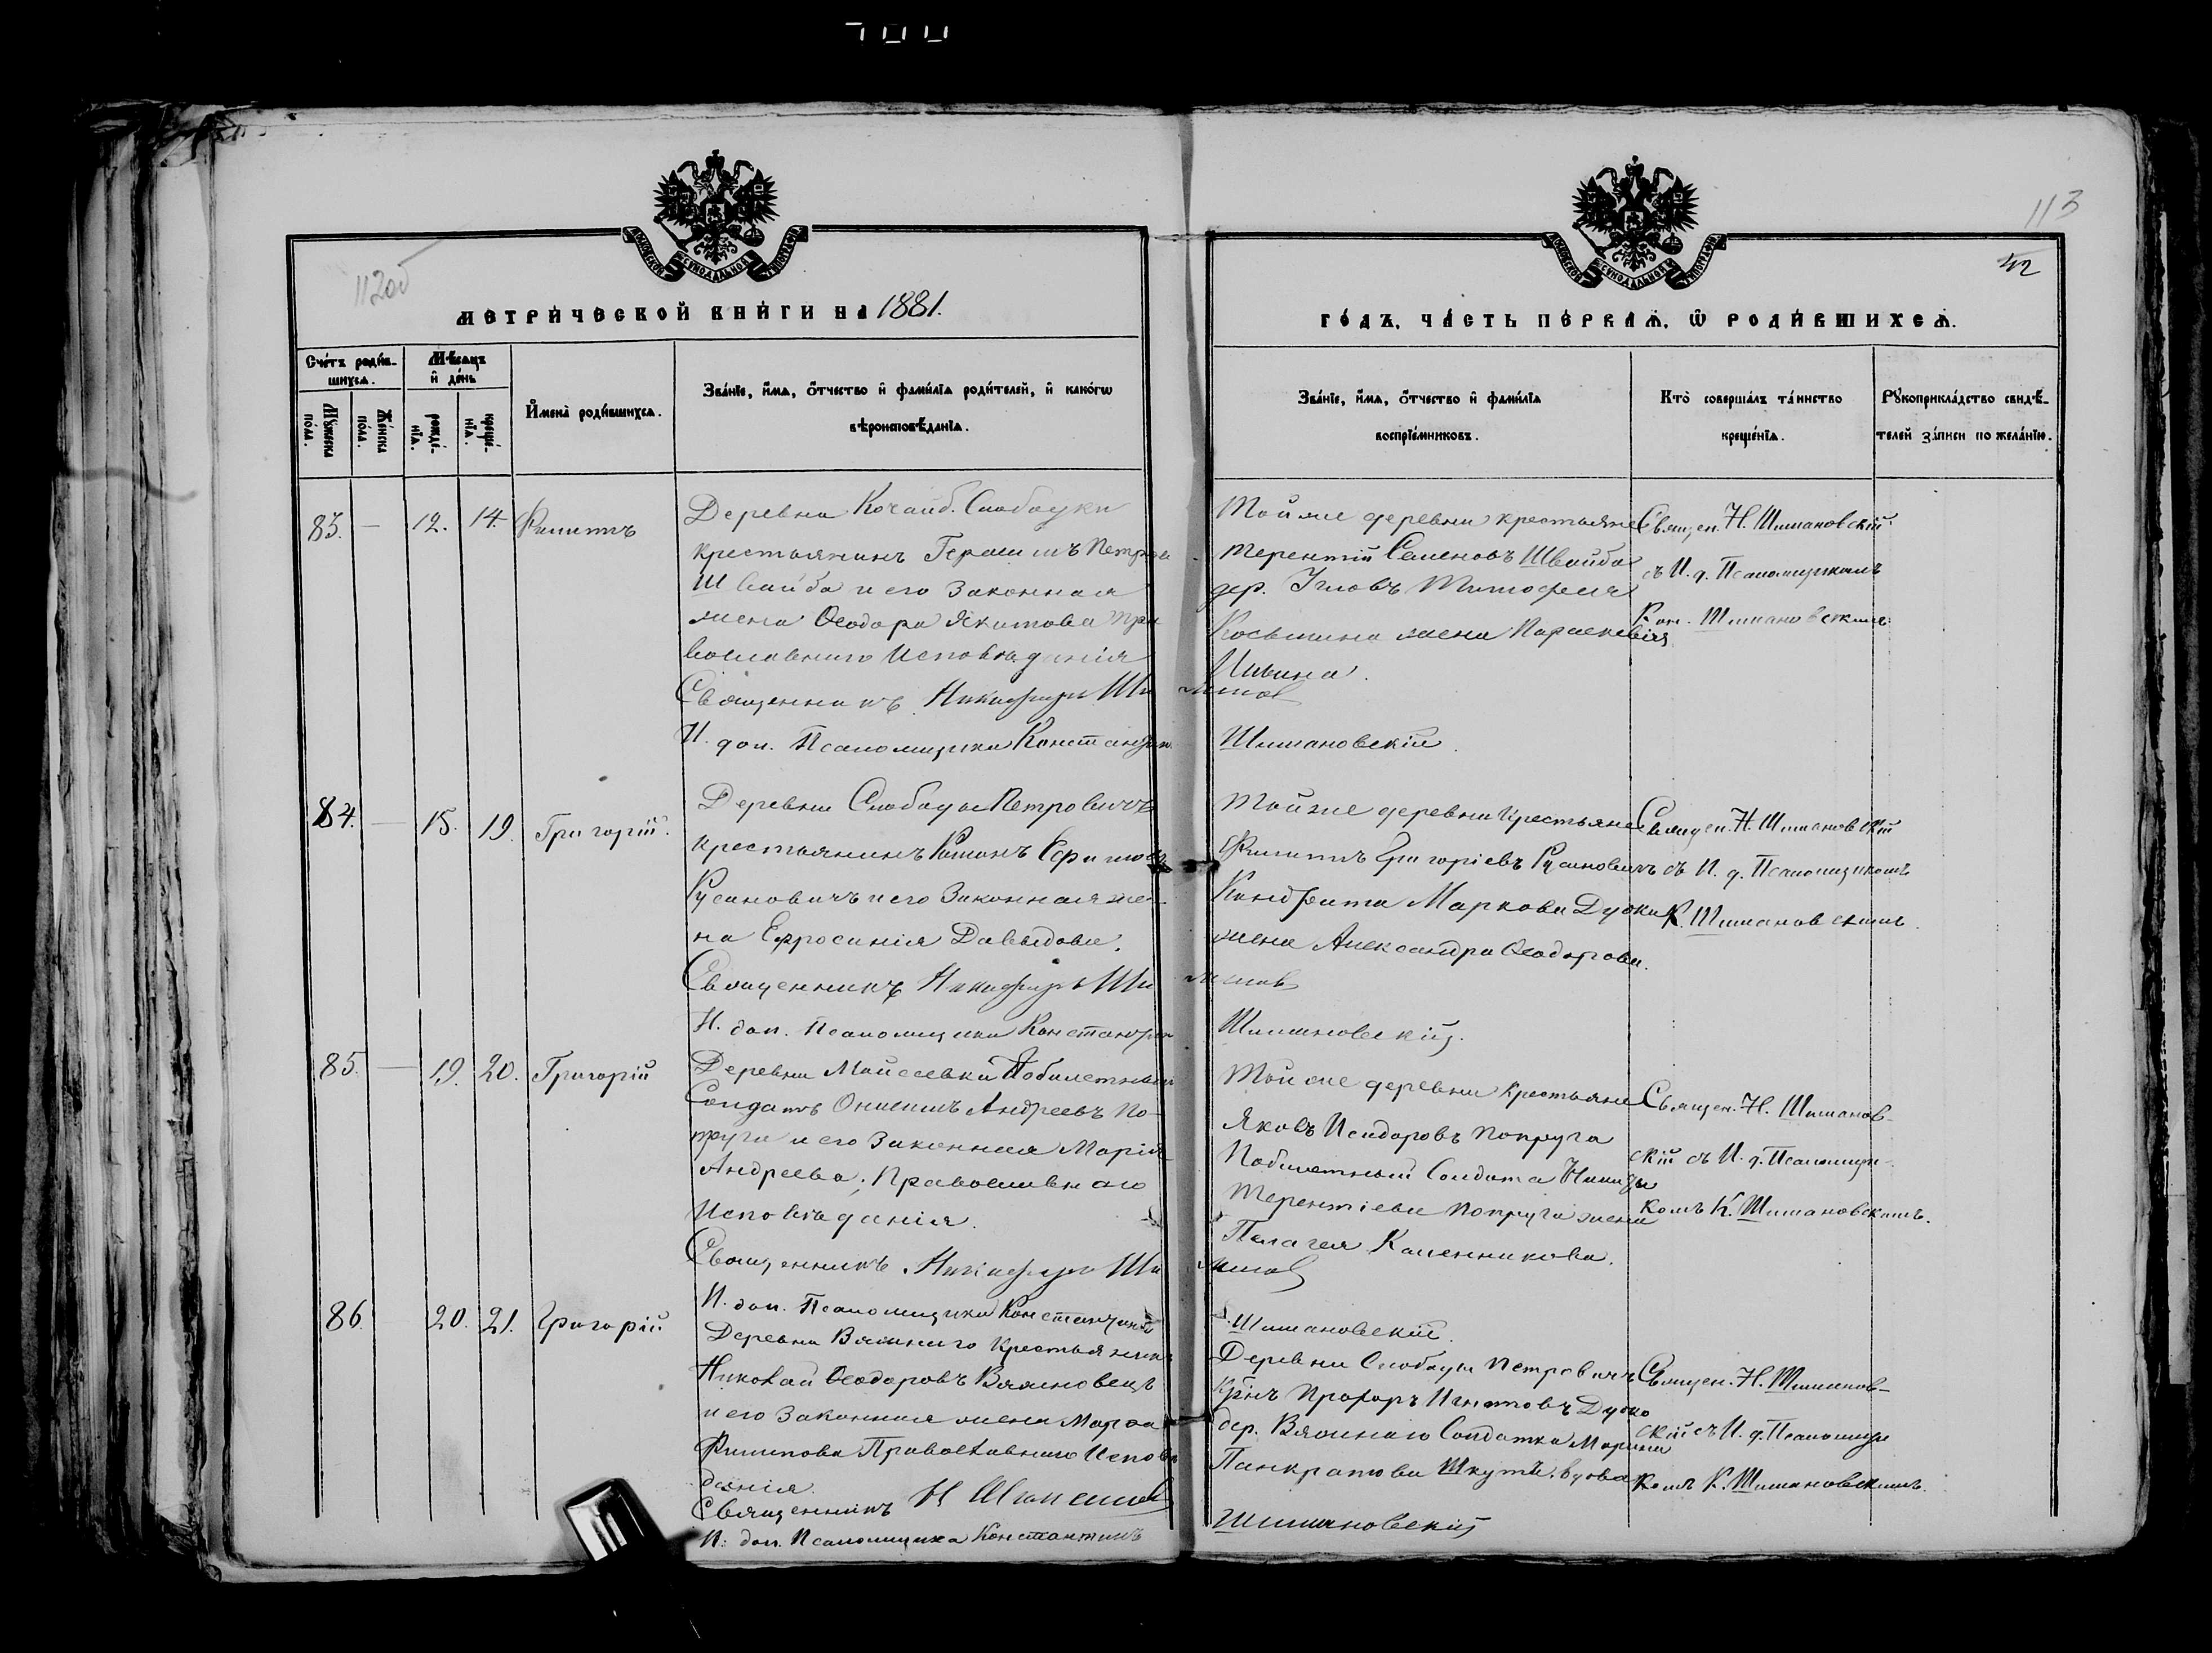 113
42
112об
МОСКОВСКОЙ СѴНОДАЛЬНОЙ ТИПОГРАФІИ
МОСКОВСКОЙ СѴНОДАЛЬНОЙ ТИПОГРАФІИ
МЕТРИ́ЧЕСКОЙ КНИ́ГИ НА 1881.
ГО́ДЪ, ЧА́СТЬ ПЕ́РВАѦ, Ѡ҆ РОДИ́ВШИХСѦ.
Сче́тъ роди́в-
шихсѧ.
Мꙋ́жеска по́ла.
Же́нска по́ла.
Мѣ́сѧцъ
и҆ де́нь
рожде́-нїѧ.
креще́-нїѧ.
И҆мена̀ роди́вшихсѧ.
Зва́нїе, и҆́мѧ, ѻ҆́тчество и҆ фами́лїѧ роди́телей, и҆ како́гѡ
вѣроисповѣ́данїѧ.
Зва́нїе, и҆́мѧ, ѻ҆́тчество и҆ фами́лїѧ
воспрїе́мниковъ.
Кто̀ соверша́лъ та́инство
креще́нїѧ.
Рꙋкоприкла́дство свидѣ́-
телей за́писи по жела́нїю.
83. — 12. 14. Филиппъ
Деревни Слободки
крестьянинъ Герасимъ Петровъ
Швайба и его законная
жена Ѳеодора Якимова пра
вославнаго исповѣданія
Священникъ Никифоръ Ши
И. дол. Псаломщика Константинъ
Той же деревни крестьяне
Терентій Семеновъ Швайба
дер. Тимофея
Косьмина жена Параскевія
Ильина.
манов
Шимановскій.
Священ. Н. Шимановскій
съ И. д. Псаломщикомъ
Кон. Шимановскимъ
84. — 15. 19. Григорій.
Деревни Слободы Петровичъ
крестьянинъ Романъ Ефимовъ
Русиновичъ и его законная же-
на Ефросинія Давыдова.
Священникъ Никифоръ Ши
И. дол. Псаломщика Константин
Той же деревни крестьяне
Филиппъ Григоріевъ Русиновичъ
Кондрата Маркова Дудка
жена Александра Ѳеодорова.
манов
Шимановскій.
Священ. Н. Шимановскій
съ И. д. Псаломщикомъ
К. Шимановскимъ.
85. — 19. 20. Григорій
Деревни Мойсеевки Побилетный
Солдатъ Онисимъ Андреевъ По-
пруга и его законная Марія
Андреева; Православнаго
Исповѣданія.
Священникъ Никифоръ Ши
И. дол. Псаломщика Константинъ
Той же деревни крестьяне
Яковъ Исидоровъ Попруга
Побилетный Солдата Никиты
Терентіева Попруга жена
Пелагея Каленникова.
манов
Шимановскій.
Священ. Н. Шиманов-
скій съ И. д. Псаломщи-
комъ К. Шимановскимъ.
86. — 20. 21. Григорій
Деревни Вязынаго крестьянинъ
Николай Ѳеодоровъ Вязновецъ
и его законная жена Марѳа
Филипова Православнаго Исповѣ
данія.
Священникъ Н Шиманов
И. дол. Псаломщика Константинъ
Деревни Слободы Петровичъ
кр̃нъ Прохоръ Игнатовъ Дудко
дер. Вязынаго Солдатка Марина
Панкратова вдова
Шимановскій
Священ. Н. Шиманов-
скій съ И. д. Псаломщи
комъ К. Шимановскимъ.